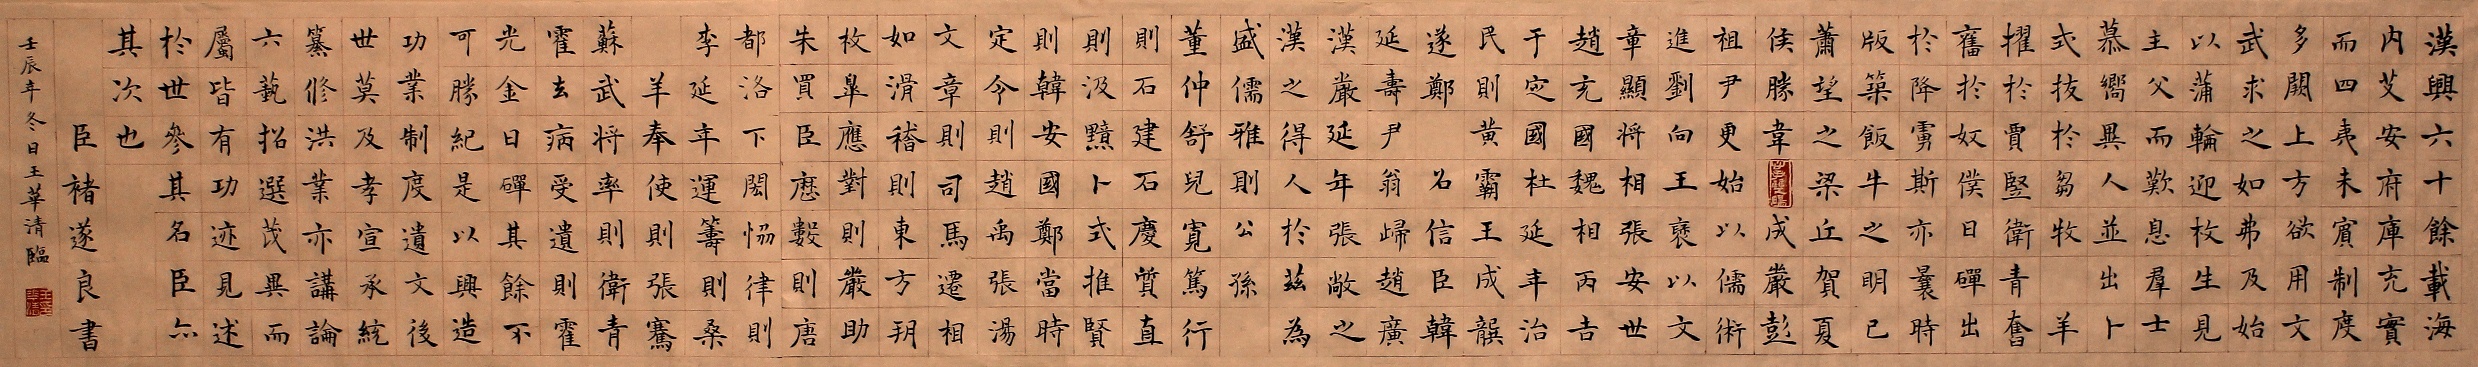 漢興六十餘載海
内艾安府庫充實
而四夷未賓制度
多闕上方欲用文
武求之如弗及始
以蒲輪迎枚生見
主父而歎息羣士
慕嚮異人並出卜
式拔於芻牧 羊
擢於賈豎衛青奮
舊於奴僕日磾出
於降虜斯亦曩時
版築飯牛之明已
蕭望之梁丘賀夏
侯勝韋 成嚴彭
祖尹更始以儒術
進劉向王襃以文
章顯將相張安世
趙充國魏相丙吉
于定國杜延年治
民則黃霸王成龔
遂鄭 名信臣韓
延壽尹翁歸趙廣
漢嚴延年張敞之
漢之得人於茲為
盛儒雅則公孫
董仲舒兒寬篤行
則石建石慶質直
則汲黯卜式推賢
則韓安國鄭當時
定令則趙禹張湯
文章則司馬遷相
如滑稽則東方朔
枚皋應對則嚴助
朱買臣厯數則唐
都洛下閎恊律則
李延年運籌則桑
羊奉使則張騫
蘇武将率則衛青
霍去病受遺則霍
光金日磾其餘不
可勝紀是以興造
功業制度遺文後
世莫及孝宣承統
纂修洪業亦講論
六藝招選茂異而
屬皆有功迹見述
於世參其名臣亦
其次也
臣褚遂良書
壬辰年冬日王華清臨